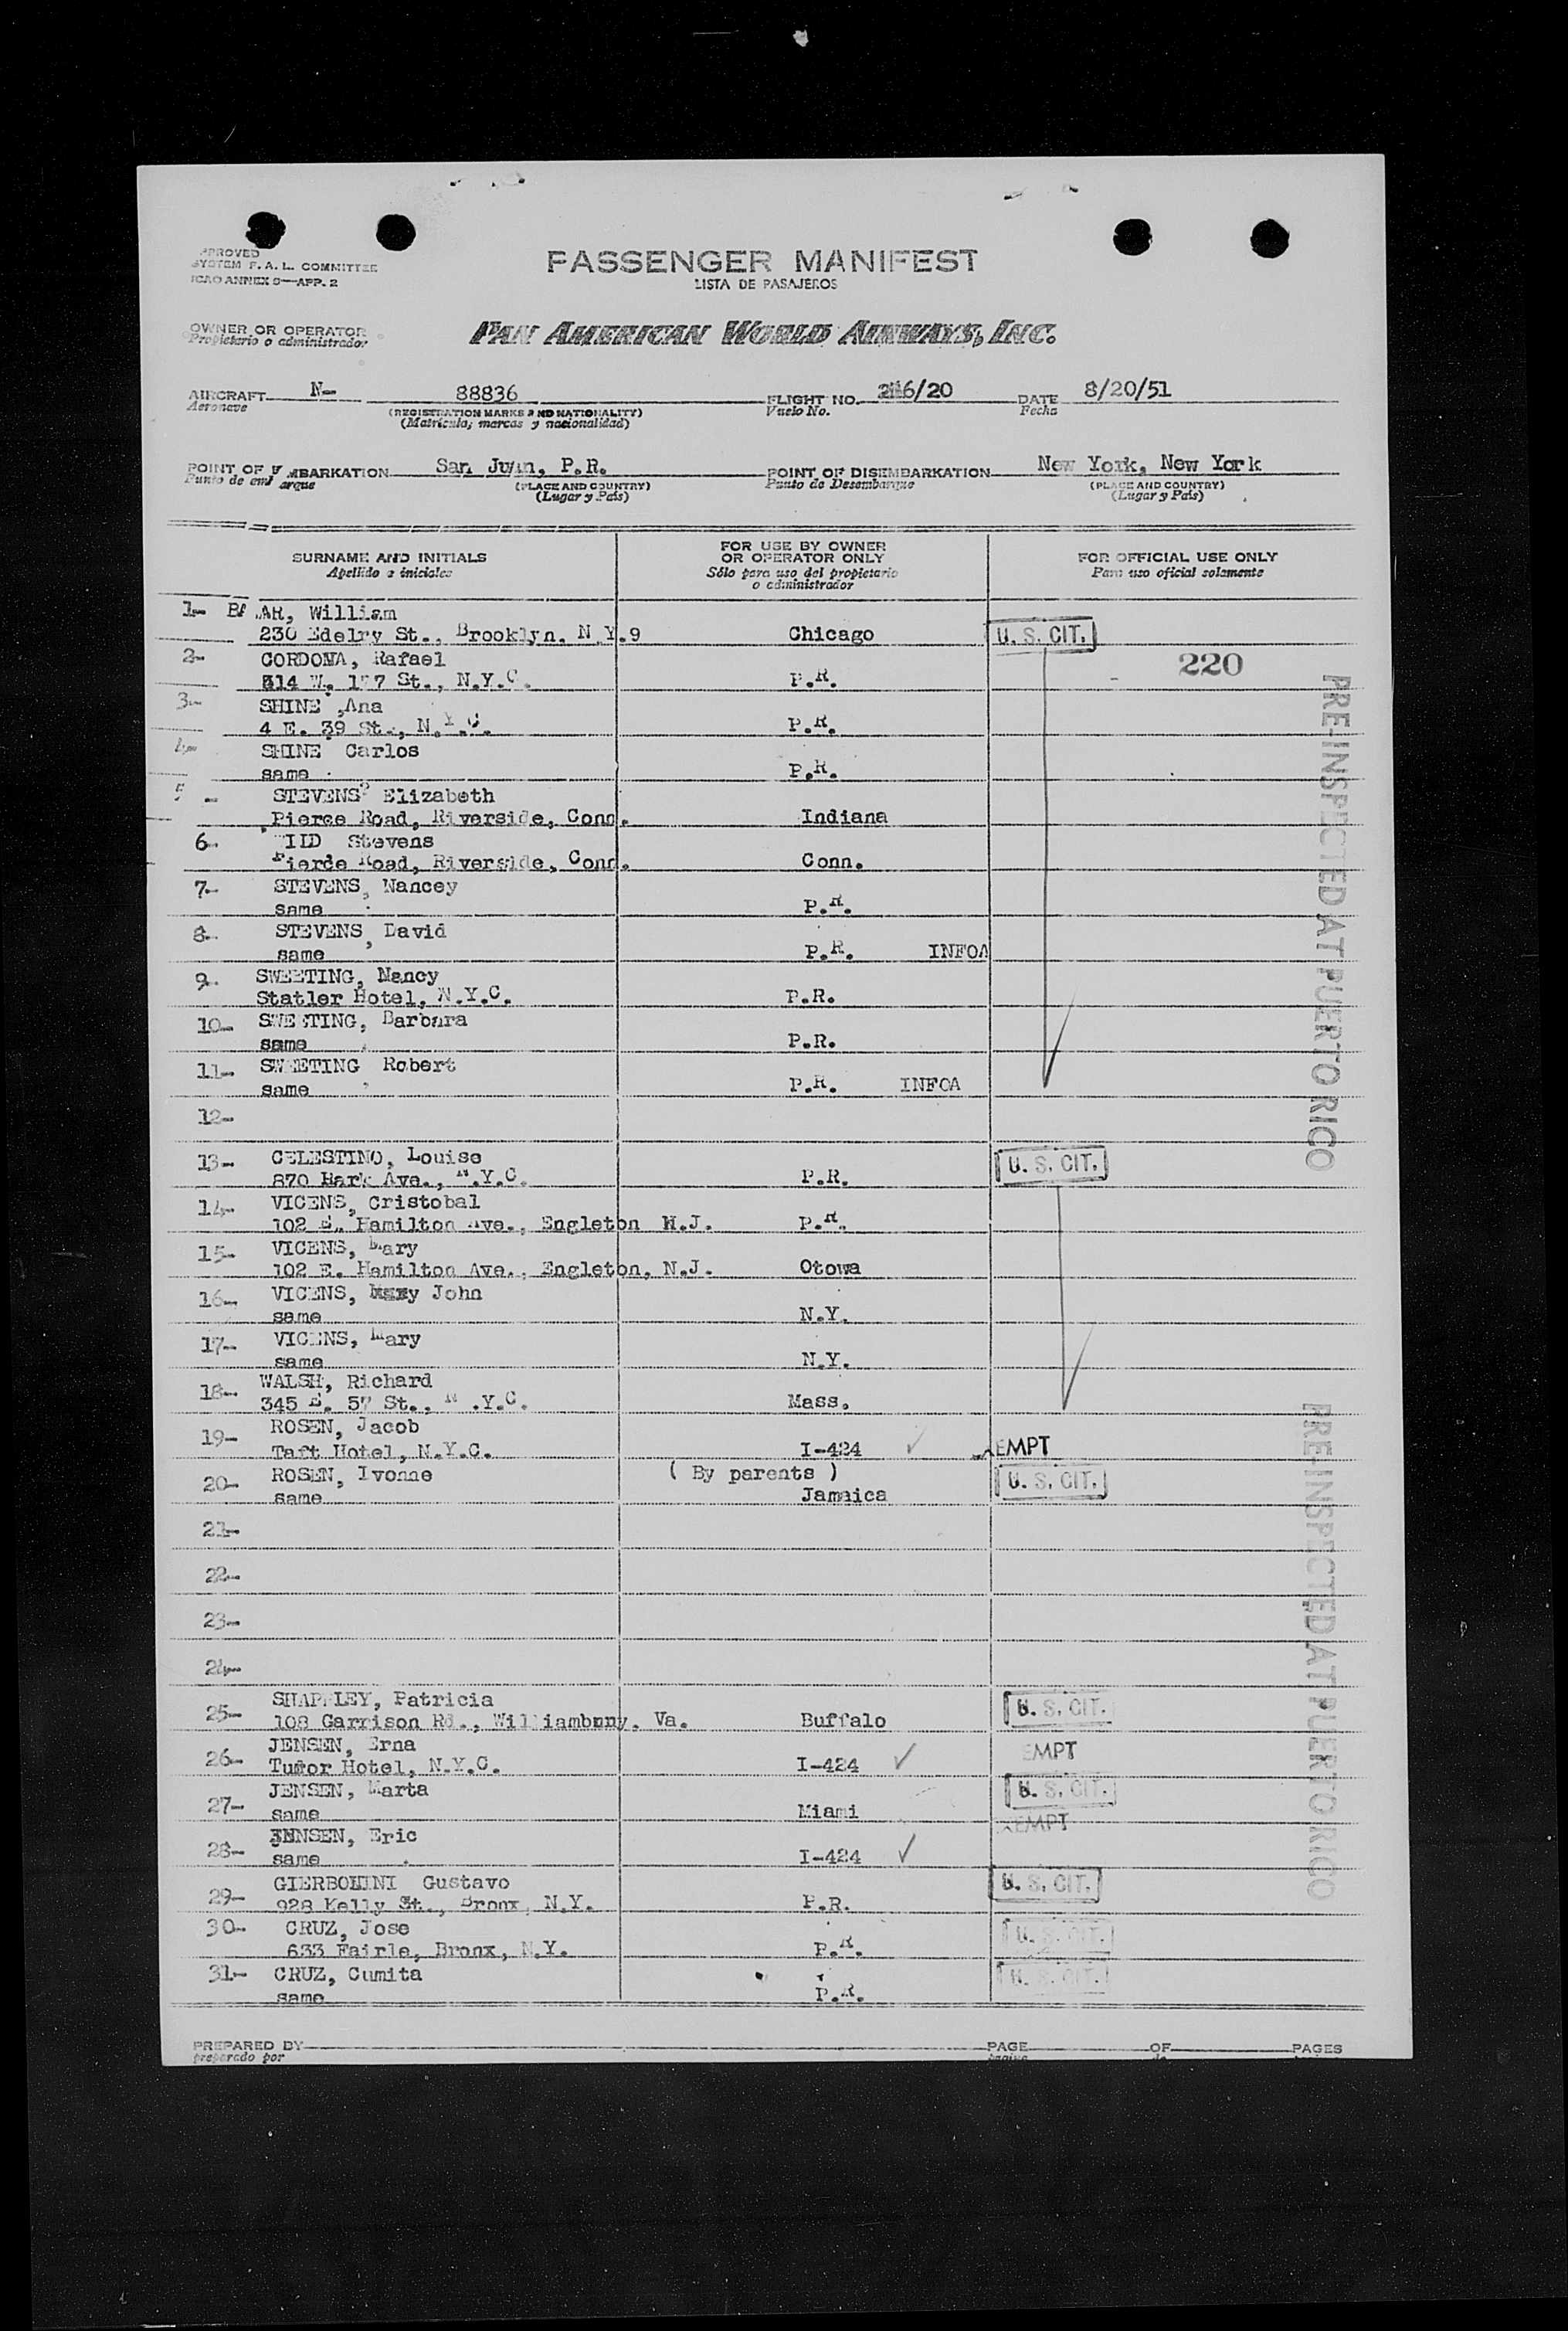 PROVED
SYSTEM F.A.L. COMMITTEE
ICAO ANNEX 9—APP. 2
PASSENGER MANIFEST
LISTA DE PASAJEROS
OWNER OR OPERATOR
Propietario o administrador
PAN AMERICAN WORLD AIRWAYS, INC.
AIRCRAFT N- 88836 FLIGHT NO. 216/20 DATE 8/20/51
Aeronave (REGISTRATION MARKS AND NATIONALITY) Vuelo No. Fecha
(Matrícula, marcas y nacionalidad)
POINT OF EMBARKATION San Juan, P.R. POINT OF DISEMBARKATION New York, New York
Punto de embarque (PLACE AND COUNTRY) Punto de Desembarque (PLACE AND COUNTRY)
(Lugar y País) (Lugar y País)
SURNAME AND INITIALS FOR USE BY OWNER OR OPERATOR ONLY FOR OFFICIAL USE ONLY
Apellido e iniciales Sólo para uso del propietario o administrador Para uso oficial solamente
1- AR, William
230 Edelry St., Brooklyn, N.Y.9 Chicago U. S. CIT.
2- CORDOVA, Rafael 220
W. St., N.Y.C. P.R.
3- SHINE ,Ana
4 E. 39 St., N.Y.C. P.R.
4- SHINE Carlos
same P.R.
5- STEVENS, Elizabeth
Pierce Road, Riverside, Conn. Indiana
6- Stevens
Pierce Road, Riverside, Conn. Conn.
7- STEVENS, Nancey
same P.R.
8- STEVENS, David
same P.R. INFOA
9- SWEETING, Nancy
Statler Hotel, N.Y.C. P.R.
10- SWEETING, Barbara
same P.R.
11- SWEETING, Robert
same P.R. INFOA
12-
13- CELESTINO, Louise U. S. CIT.
870 Ave., N.Y.C. P.R.
14- VICENS, Cristobal
102 E. Hamilton Ave., Engleton N.J. P.R.
15- VICENS, Mary
102 E. Hamilton Ave., Engleton, N.J. Otowa
16- VICENS, John
same N.Y.
17- VICENS, Mary
same N.Y.
18- WALSH, Richard
345 E. 57 St., N.Y.C. Mass.
19- ROSEN, Jacob
Taft Hotel, N.Y.C. I-424 ✓ EMPT
20- ROSEN, Ivonne ( By parents )
same Jamaica U. S. CIT.
21-
22-
23-
24-
25- SHAPPLEY, Patricia U. S. CIT.
108 Garrison Rd., Va. Buffalo
26- JENSEN, Erna EMPT
Tudor Hotel, N.Y.C. I-424 ✓
27- JENSEN, Marta U. S. CIT.
same Miami EMPT
28- JENSEN, Eric
same I-424 ✓
29- GIERBOLINI Gustavo U. S. CIT.
928 Kelly St., Bronx, N.Y. P.R.
30- CRUZ, Jose U. S. CIT.
633 Fairle, Bronx, N.Y. P.R.
31- CRUZ, Cumita U. S. CIT.
same P.R.
PRE-INSPECTED AT PUERTO RICO
PRE-INSPECTED AT PUERTO RICO
PREPARED BY PAGE OF PAGES
preparado por